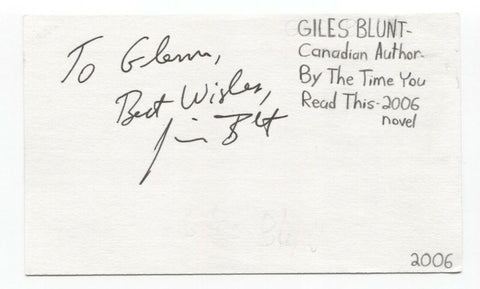 To Glenn,
Best Wishes,
GILES BLUNT-
Canadian Author-
By The Time You
Read This-2006
novel
2006